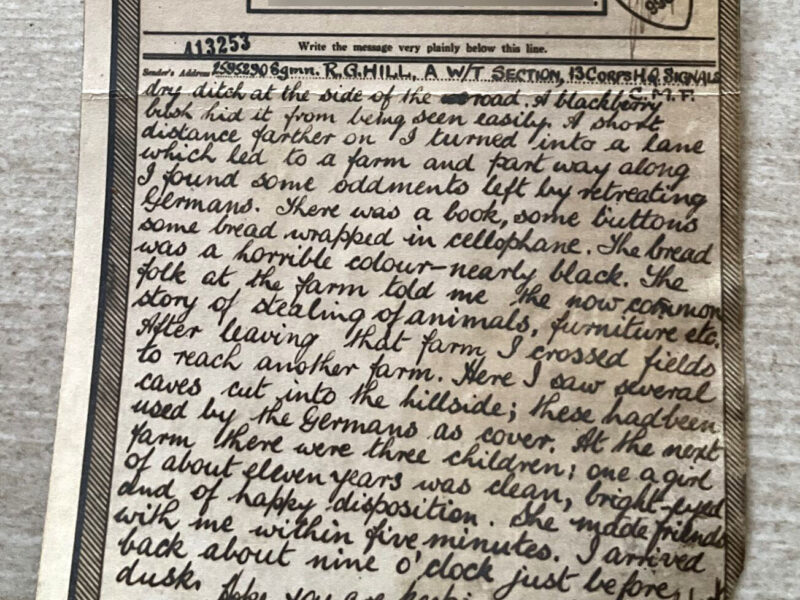 A13253
Write the message very plainly below this line.
Sender's Address 2595290 Sgmn. R.G.HILL, A W/T SECTION, 13 CORPS H.Q. SIGNALS
C.M.F.
dry ditch at the side of the road. A blackberry
bush hid it from being seen easily. A short
distance farther on I turned into a lane
which led to a farm and part way along
I found some oddments left by retreating
Germans. There was a book, some buttons
some bread wrapped in cellophane. The bread
was a horrible colour-nearly black. The
folk at the farm told me the now common
story of stealing of animals, furniture etc.
After leaving that farm I crossed fields
to reach another farm. Here I saw several
caves cut into the hillside; these had been
used by the Germans as cover. At the next
farm there were three children; one a girl
of about eleven years was clean, bright-eyed
and of happy disposition. She made friends
with me within five minutes. I arrived
back about nine o'clock just before
dusk.
you are